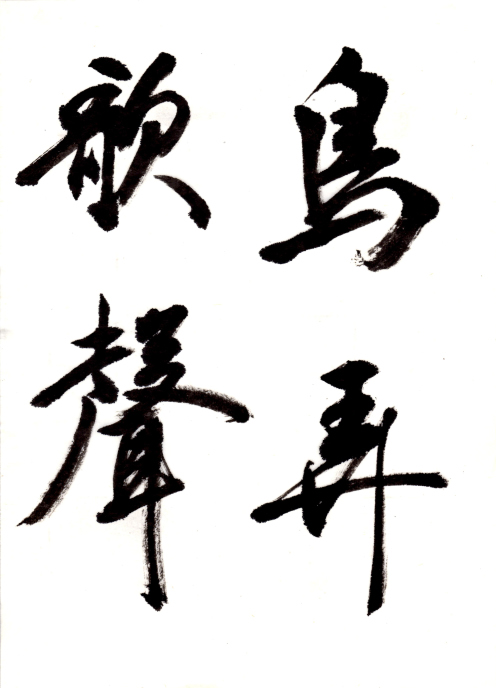 鳥弄
歌聲